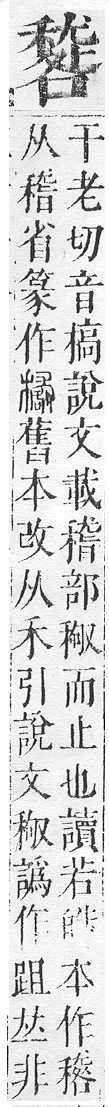 干老切音槁說文載稽部而止也讀若皓本作
从稽省篆作舊本改从禾引說文譌作跙𠀤非